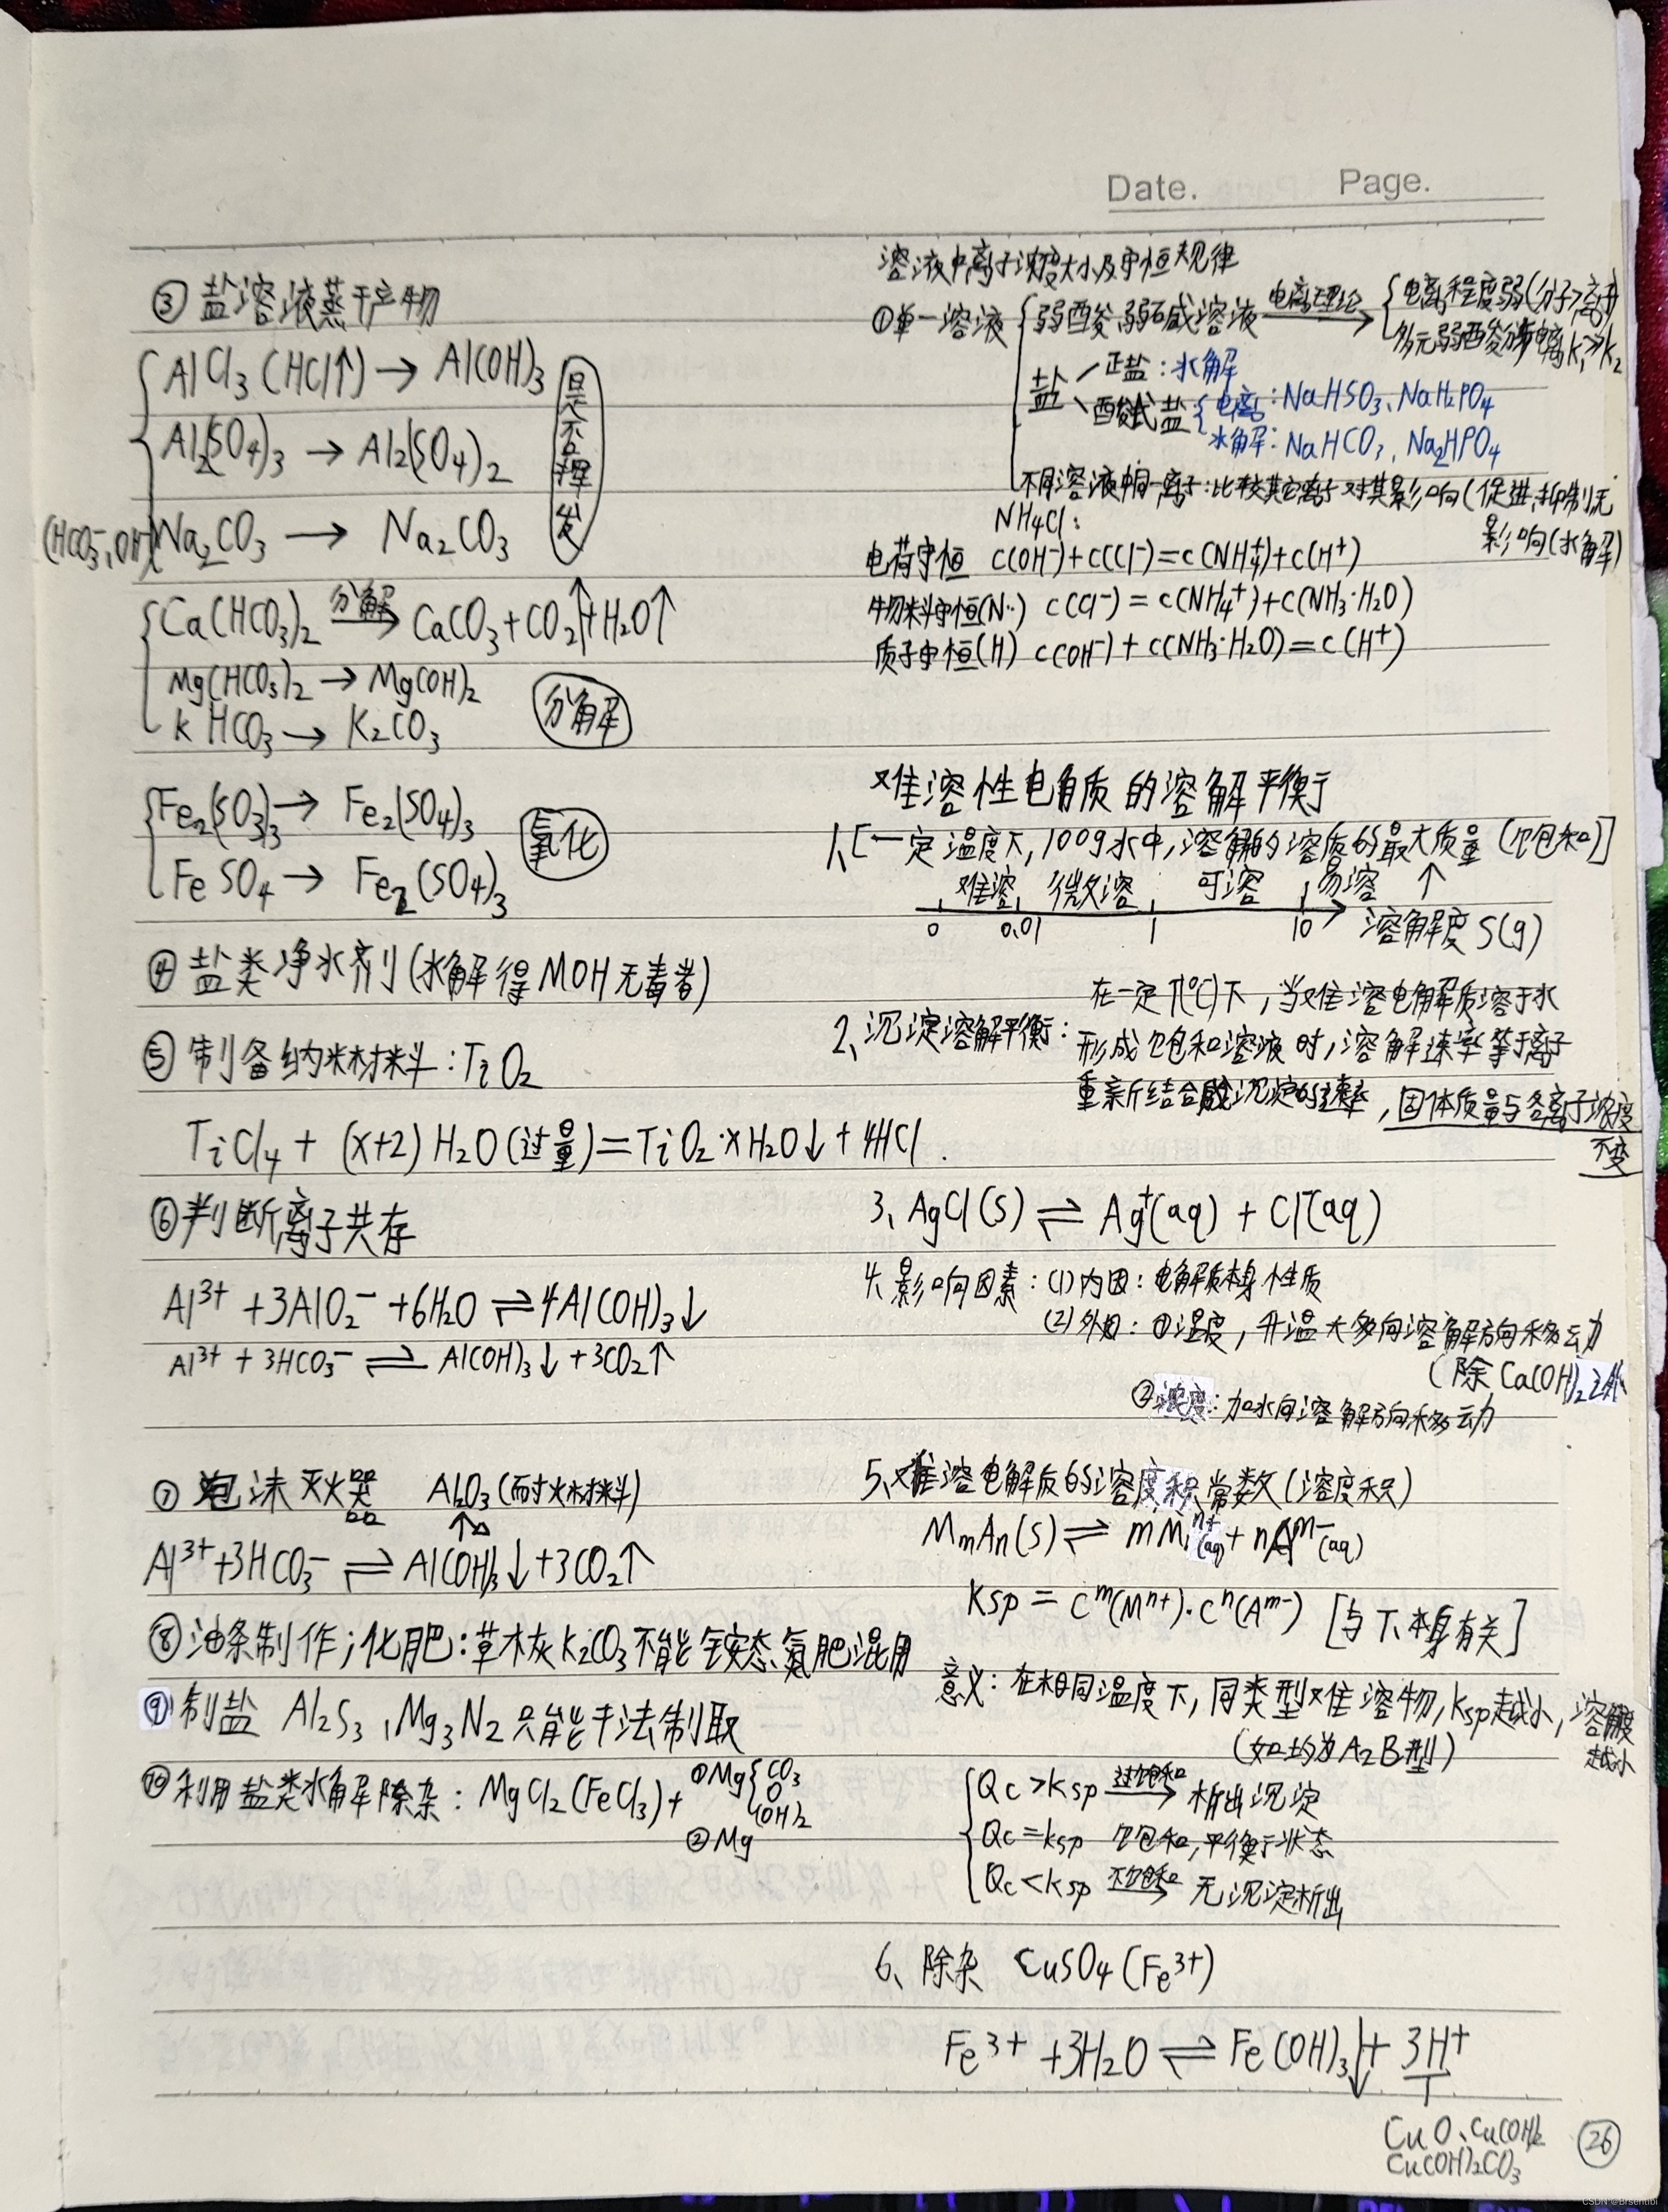 Date. Page.
③ 盐溶液蒸干产物
AlCl₃ (HCl↑) → Al(OH)₃
Al₂(SO₄)₃ → Al₂(SO₄)₂
(HCO₃⁻, OH⁻) Na₂CO₃ → Na₂CO₃
是否挥发
Ca(HCO₃)₂ 分解→ CaCO₃+CO₂↑+H₂O↑
Mg(HCO₃)₂ → Mg(OH)₂
KHCO₃ → K₂CO₃
分解
Fe₂(SO₃)₃ → Fe₂(SO₄)₃
FeSO₄ → Fe₂(SO₄)₃
氧化
④ 盐类净水剂(水解得MOH无毒者)
⑤ 制备纳米材料:TiO₂
TiCl₄ + (x+2) H₂O(过量)=TiO₂·xH₂O↓ + 4HCl.
⑥判断离子共存
Al³⁺ +3AlO₂⁻ +6H₂O ⇌ 4Al(OH)₃↓
Al³⁺ + 3HCO₃⁻ ⇌ Al(OH)₃↓ +3CO₂↑
⑦ 泡沫灭火器 Al₂O₃(耐火材料)
↑△
Al³⁺+3HCO₃⁻ ⇌ Al(OH)₃↓+3CO₂↑
⑧油条制作;化肥:草木灰K₂CO₃不能铵态氮肥混用
⑨制盐 Al₂S₃,Mg₃N₂只能干法制取
⑩利用盐类水解除杂:MgCl₂(FeCl₃)+ ①Mg{CO₃
O
(OH)₂
②Mg
溶液中离子浓度大小及守恒规律
①单一溶液 弱酸、弱碱溶液 电离理论→ 电离程度弱(分子>离子)
多元弱酸分步电离K₁≫K₂
盐 正盐:水解
酸式盐 电离:NaHSO₃、NaH₂PO₄
水解:NaHCO₃,Na₂HPO₄
不同溶液中同一离子:比较其它离子对其影响(促进、抑制、无
影响(水解)
NH₄Cl:
电荷守恒 c(OH⁻)+c(Cl⁻)=c(NH₄⁺)+c(H⁺)
物料守恒(N··) c(Cl⁻)=c(NH₄⁺)+c(NH₃·H₂O)
质子守恒(H) c(OH⁻)+c(NH₃·H₂O)=c(H⁺)
难溶性电解质的溶解平衡
1、[一定温度下,100g水中,溶解的溶质的最大质量(饱和)]
难溶 微溶 可溶 易溶 ↑
0 0.01 1 10 溶解度S(g)
2、沉淀溶解平衡:在一定T(℃)下,当难溶电解质溶于水
形成饱和溶液时,溶解速率等于离子
重新结合成沉淀的速率,固体质量与各离子浓度
不变
3、AgCl(s) ⇌ Ag⁺(aq) + Cl⁻(aq)
4、影响因素:(1)内因:电解质本身性质
(2)外因:①温度,升温大多向溶解方向移动
(除Ca(OH)₂之外
②浓度:加水向溶解方向移动
5、难溶电解质的溶度积常数(溶度积)
MmAn(s) ⇌ mMⁿ⁺(aq) + nAᵐ⁻(aq)
Ksp = cᵐ(Mⁿ⁺)·cⁿ(Aᵐ⁻) [与T、本身有关]
意义:在相同温度下,同类型难溶物,Ksp越小,溶解度
越小
(如均为A₂B型)
Qc>Ksp 过饱和→ 析出沉淀
Qc=Ksp 饱和,平衡状态
Qc<Ksp 不饱和→ 无沉淀析出
6、除杂 CuSO₄(Fe³⁺)
Fe³⁺ +3H₂O ⇌ Fe(OH)₃↓+ 3H⁺
CuO、Cu(OH)₂
Cu(OH)₂CO₃
26
CSDN @Brsentibi